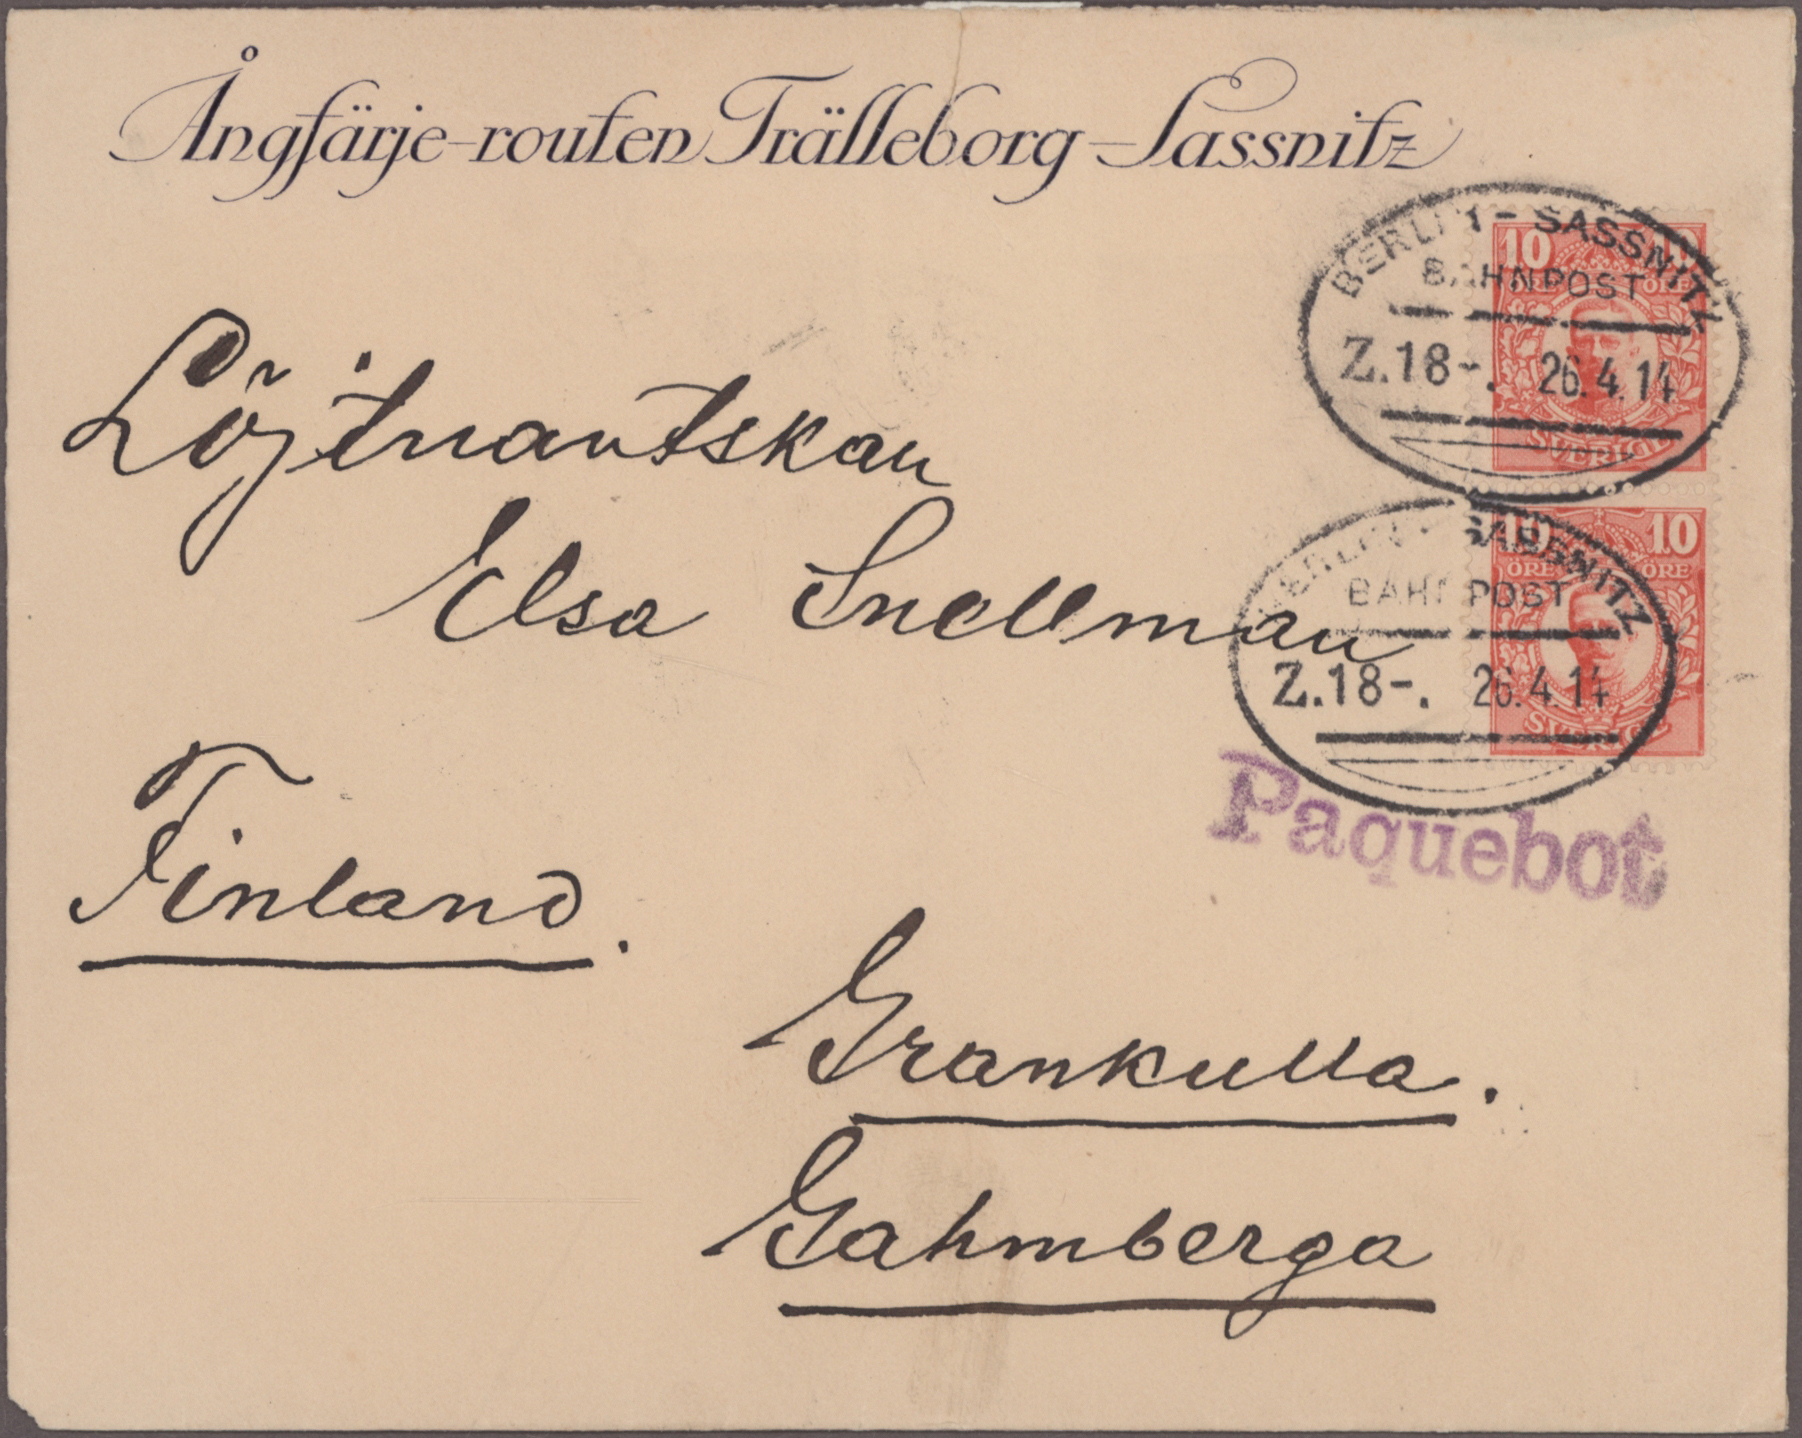 Ångfärje-routen Trälleborg-Sassnitz
BERLIN - SASSNITZ
BAHNPOST
Z.18-. 26.4.14
10 10
ÖRE ÖRE
SVERIGE
Löjtnantskan
Elsa Snellman
BERLIN - SASSNITZ
BAHNPOST
Z.18-. 26.4.14
10 10
ÖRE ÖRE
SVERIGE
Paquebot
Finland.
Grankulla.
Gahmberga